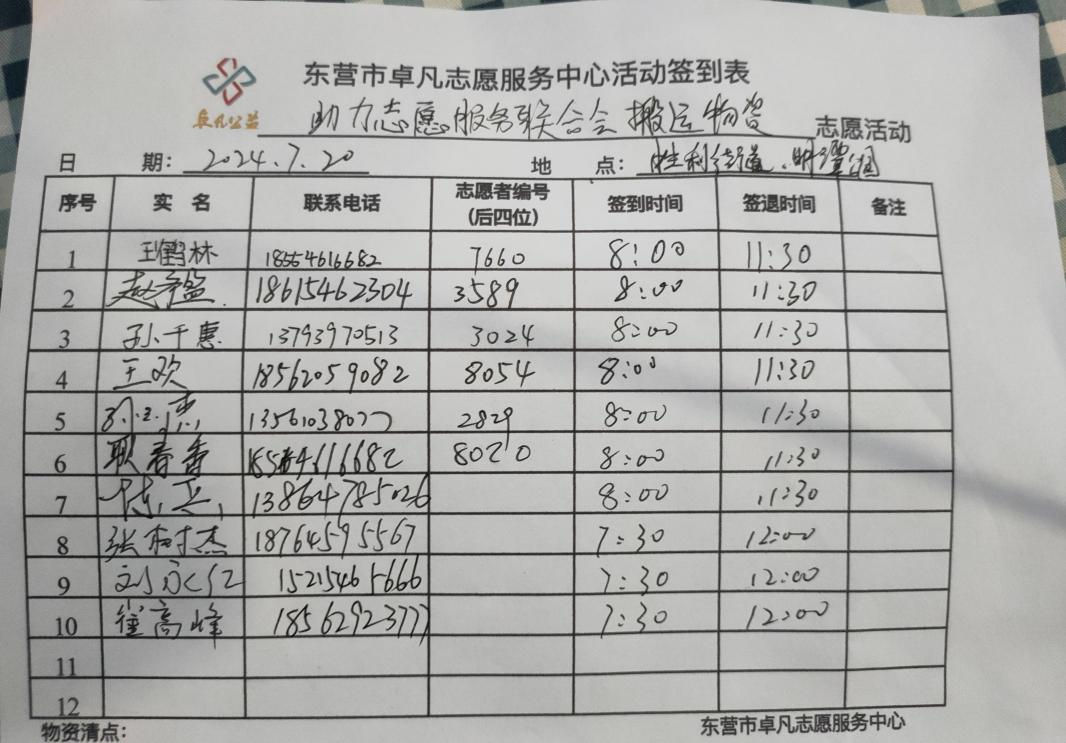 东营市卓凡志愿服务中心活动签到表
卓凡公益 助力志愿服务联合会搬运物资 志愿活动
日 期: 2024.7.20 地 点: 胜利街道
序号 实 名 联系电话 志愿者编号(后四位) 签到时间 签退时间 备注
1 王鹤林 18554616682 7660 8:00 11:30
2 赵 18615462304 3589 8:00 11:30
3 孙千惠 13793970513 3024 8:00 11:30
4 王欢 18562059082 8054 8:00 11:30
5 13561038077 2829 8:00 11:30
6 耿春香 18554616682 8020 8:00 11:30
7 陈兵 13864785026 8:00 11:30
8 张树杰 18764595567 7:30 12:00
9 刘永仁 15215461666 7:30 12:00
10 崔高峰 18562923777 7:30 12:00
11
12
物资清点: 东营市卓凡志愿服务中心